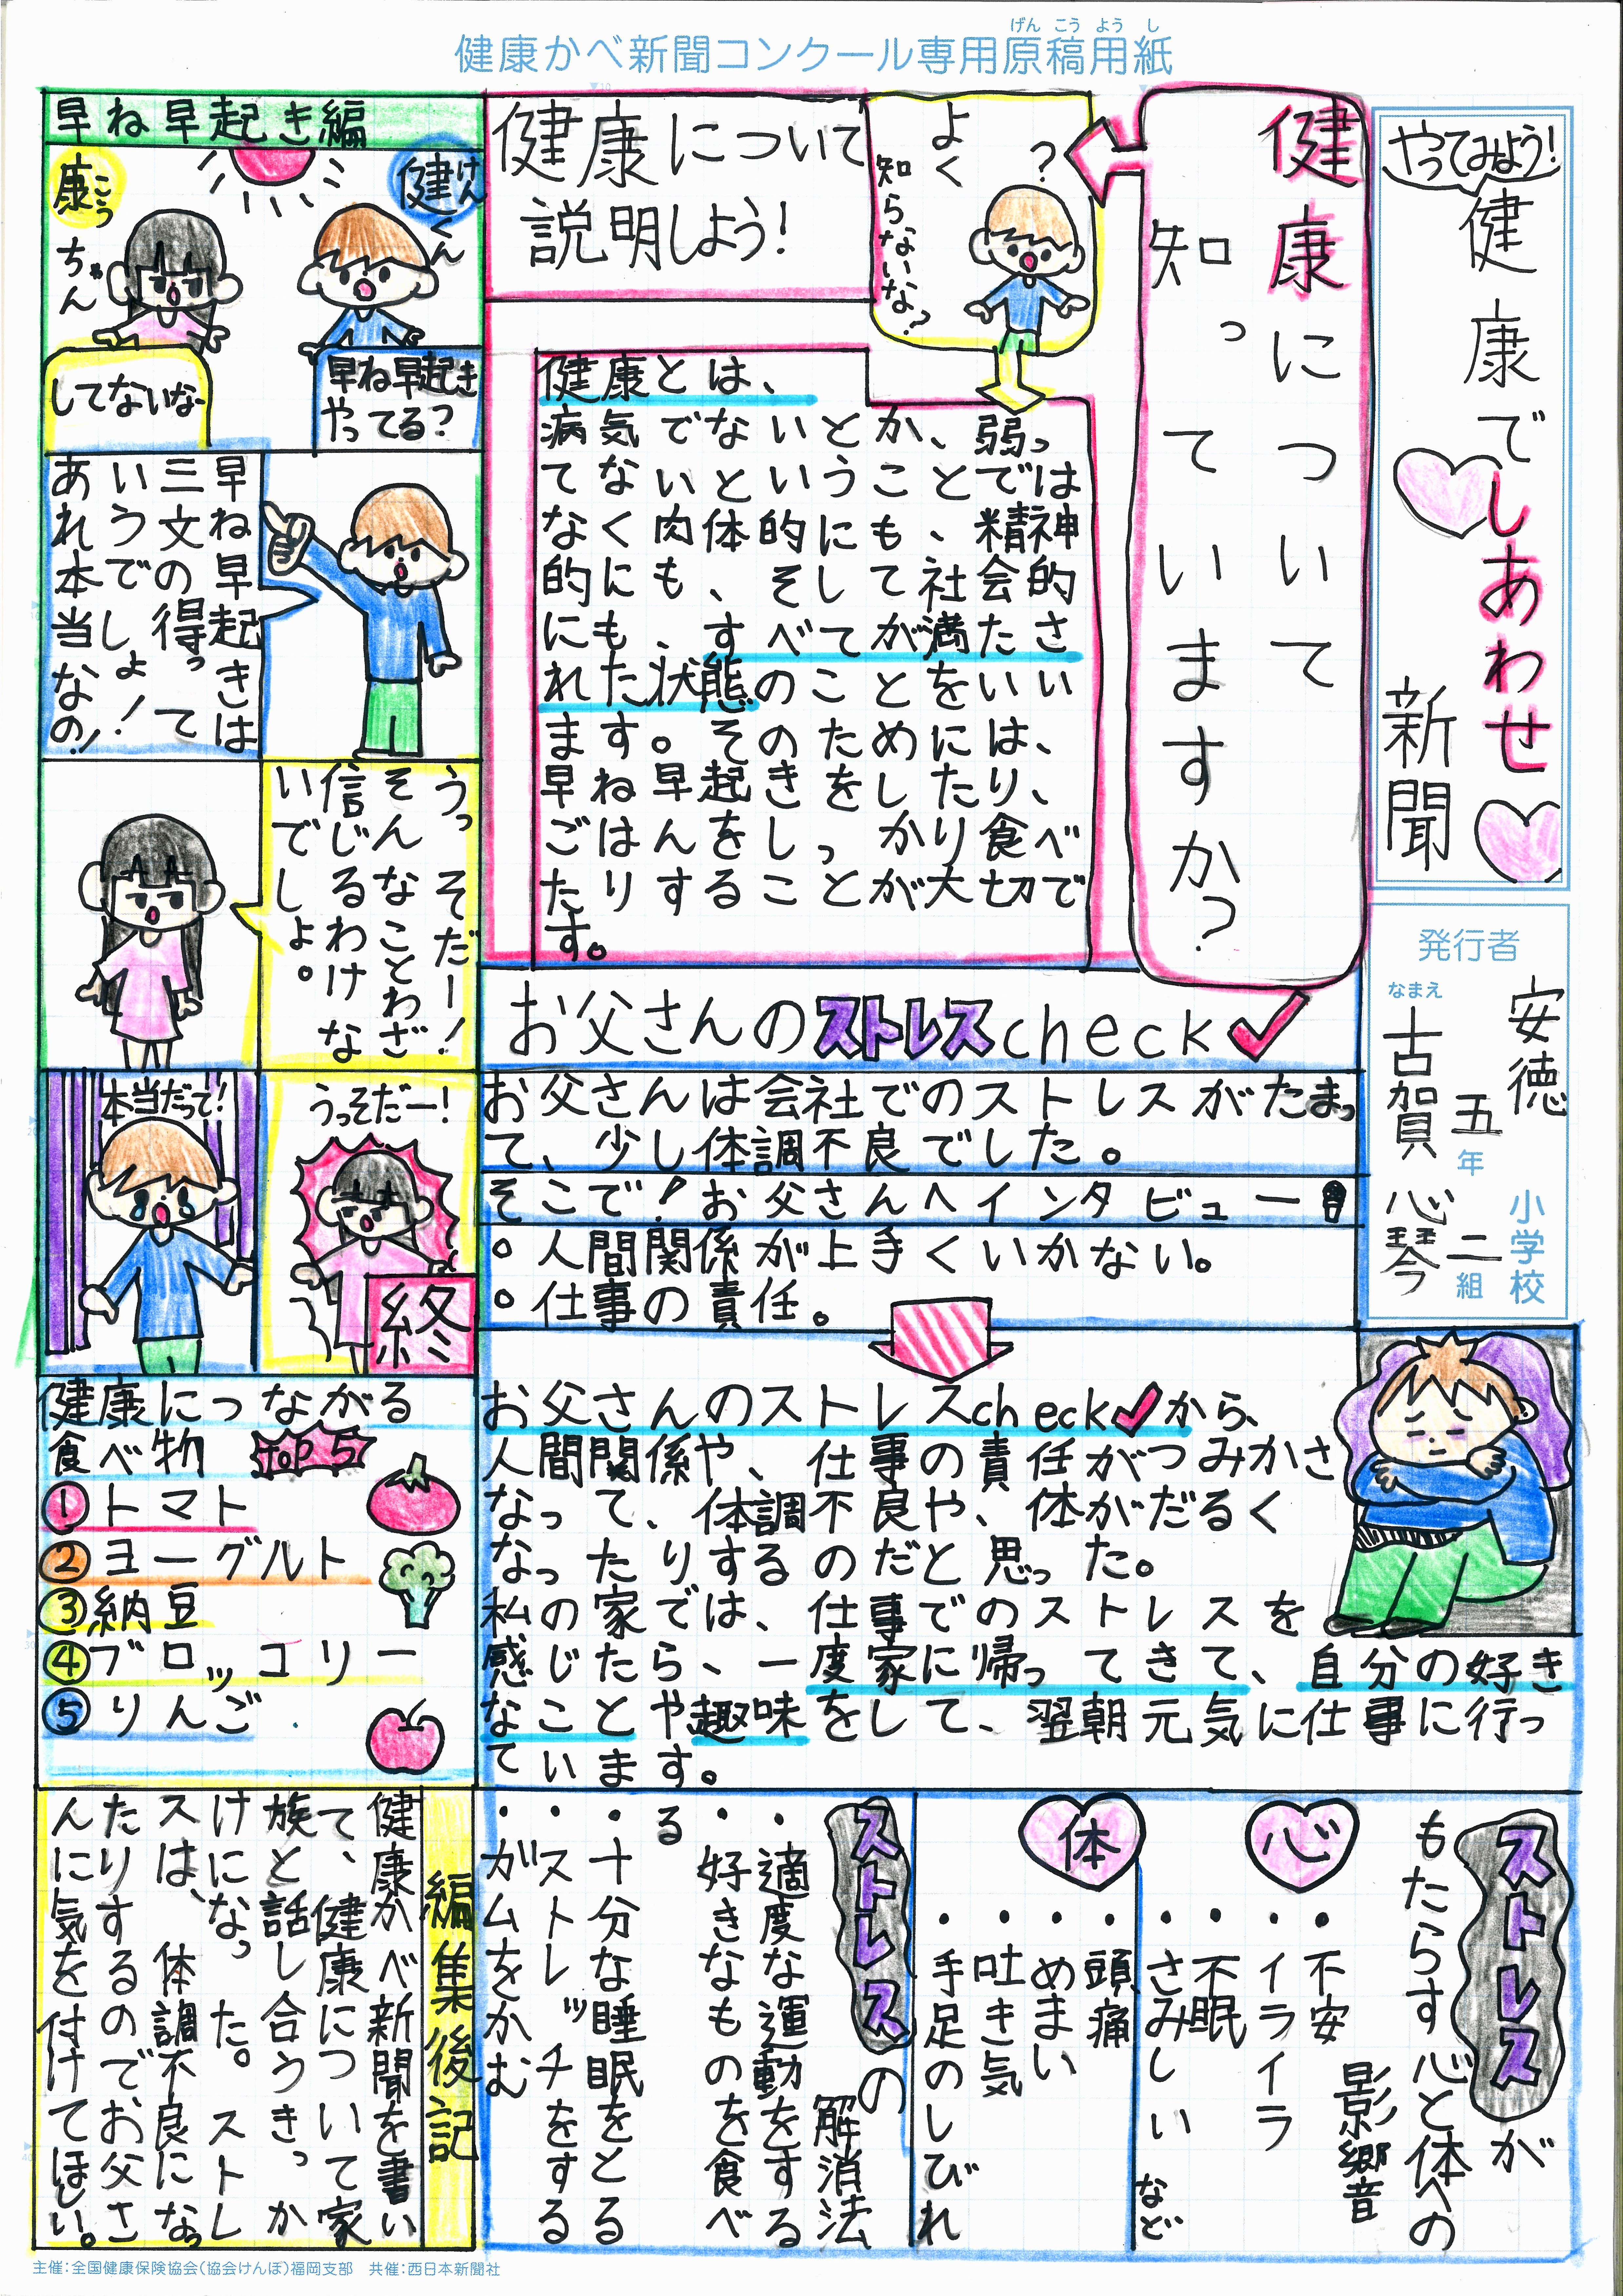 健康かべ新聞コンクール専用原稿用紙
げんこうようし
やってみよう!
健康でしあわせ
新聞
発行者
安徳
小学校
五年
二組
なまえ
古賀 心琴
健康について
知っていますか?
?
よく
知らないな?
健康について
説明しよう!
健康とは、
病気でないとか、弱っ
てないということでは
なく肉体的にも、精神
的にも、そして社会的
にも、すべてが満たさ
れた状態のことをいい
ます。そのためには、
早ね早起きをしたり、
ごはんをしっかり食べ
たりすることが大切で
す。
早ね早起き編
健くん
けん
康ちゃん
こう
早ね早起き
やってる?
してないなー
早ね早起きは
三文の得って
いうでしょ!
あれ本当なの!
うっそだー!
そんなことわざ
信じるわけな
いでしょ。
うっそだー!
本当だって!
終
お父さんのストレスcheck✓
お父さんは会社でのストレスがたまっ
て、少し体調不良でした。
そこで!お父さんへインタビュー
○人間関係が上手くいかない。
○仕事の責任。
お父さんのストレスcheck✓から、
人間関係や、仕事の責任がつみかさ
なって、体調不良や、体がだるく
なったりするのだと思った。
私の家では、仕事でのストレスを
感じたら、一度家に帰ってきて、自分の好き
なことや趣味をして、翌朝元気に仕事に行っ
ています。
健康につながる
食べ物 top5
①トマト
②ヨーグルト
③納豆
④ブロッコリー
⑤りんご
ストレスが
もたらす心と体への
影郷音
心
・不安
・イライラ
・不眠
・さみしい など
体
・頭痛
・めまい
・吐き気
・手足のしびれ
ストレスの
解消法
・適度な運動をする
・好きなものを食べ
る
・十分な睡眠をとる
・ストレッチをする
・ガムをかむ
編集後記
健康かべ新聞を書い
て、健康について家
族と話し合うきっか
けになった。ストレ
スは、体調不良になっ
たりするのでお父さ
んに気を付けてほしい。
主催:全国健康保険協会(協会けんぽ)福岡支部 共催:西日本新聞社